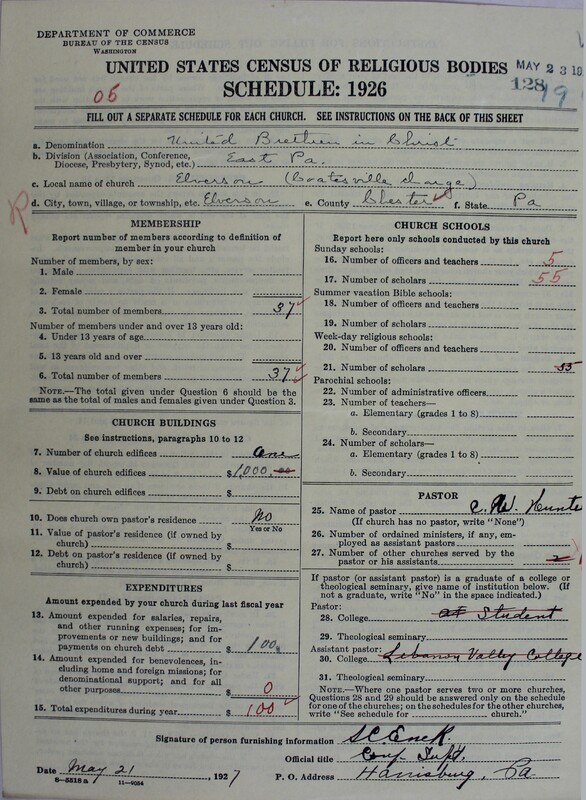 DEPARTMENT OF COMMERCE
BUREAU OF THE CENSUS
WASHINGTON
UNITED STATES CENSUS OF RELIGIOUS BODIES
MAY 23 19
128
SCHEDULE: 1926
05
FILL OUT A SEPARATE SCHEDULE FOR EACH CHURCH. SEE INSTRUCTIONS ON THE BACK OF THIS SHEET
a. Denomination United Brethren in Christ
b. Division (Association, Conference, Diocese, Presbytery, Synod, etc.) East Pa.
c. Local name of church Elverson (Coatesville charge)
R
d. City, town, village, or township, etc. Elverson e. County Chester f. State Pa
MEMBERSHIP
Report number of members according to definition of
member in your church
Number of members, by sex:
1. Male
2. Female
3. Total number of members 37
Number of members under and over 13 years old:
4. Under 13 years of age
5. 13 years old and over
6. Total number of members 37
NOTE.—The total given under Question 6 should be the
same as the total of males and females given under Question 3.
CHURCH BUILDINGS
See instructions, paragraphs 10 to 12
7. Number of church edifices One
8. Value of church edifices $1,000.00
9. Debt on church edifices $
10. Does church own pastor's residence No
Yes or No
11. Value of pastor's residence (if owned by
church) $
12. Debt on pastor's residence (if owned by
church) $
EXPENDITURES
Amount expended by your church during last fiscal year
13. Amount expended for salaries, repairs,
and other running expenses; for im-
provements or new buildings; and for
payments on church debt $ 100.
14. Amount expended for benevolences, in-
cluding home and foreign missions; for
denominational support; and for all
other purposes $ 0
15. Total expenditures during year $ 100
CHURCH SCHOOLS
Report here only schools conducted by this church
Sunday schools:
16. Number of officers and teachers 5
17. Number of scholars 55
Summer vacation Bible schools:
18. Number of officers and teachers
19. Number of scholars
Week-day religious schools:
20. Number of officers and teachers
21. Number of scholars 55
Parochial schools:
22. Number of administrative officers
23. Number of teachers—
a. Elementary (grades 1 to 8)
b. Secondary
24. Number of scholars—
a. Elementary (grades 1 to 8)
b. Secondary
PASTOR
25. Name of pastor C. W.
(If church has no pastor, write "None")
26. Number of ordained ministers, if any, em-
ployed as assistant pastors
27. Number of other churches served by the
pastor or his assistants 2
If pastor (or assistant pastor) is a graduate of a college or
theological seminary, give name of institution below. (If
not a graduate, write "No" in the space indicated.)
Pastor:
28. College at Student
29. Theological seminary
Assistant pastor:
30. College Lebanon Valley College
31. Theological seminary
NOTE.—Where one pastor serves two or more churches,
Questions 28 and 29 should be answered only on the schedule
for one of the churches; on the schedules for the other churches,
write "See schedule for church."
Signature of person furnishing information S.C. Enck
Official title Conf. Supt.
Date May 21, 1927 P. O. Address Harrisburg, Pa
8—5518 a 11—9054